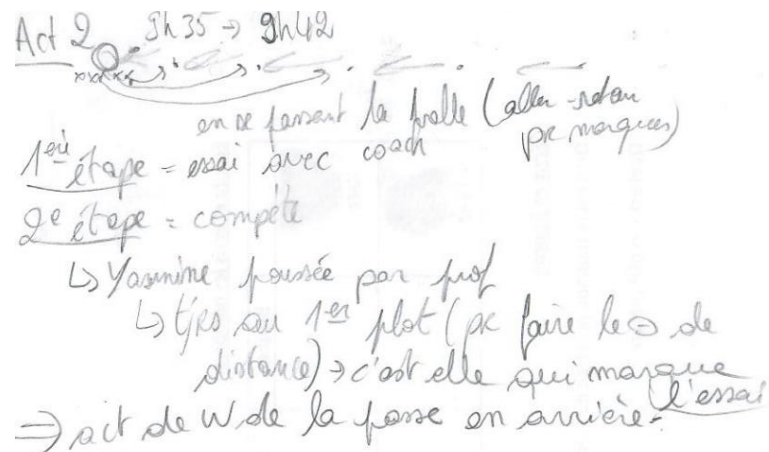 Act 2 9h35 → 9h42
en se passant la balle (aller-retour
pr marquer)
1ère étape = essai avec coach
2e étape = compéte
↳ Yasmine poussée par prof
↳ tjrs au 1er plot (pr faire le ⊖ de
distance) → c'est elle qui marque
l'essai
⇒ act de W de la passe en arrière.